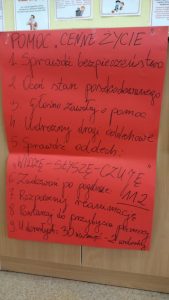 POMOC „CENNE ŻYCIE"
1. Sprawdź bezpieczeństwo
2. Oceń stan poszkodowanego
3. Głośno zawołaj o pomoc
4. Udrożnij drogi oddechowe
5. Sprawdź oddech:
„WIDZĘ-SŁYSZĘ-CZUJĘ"
6. Zadzwoń po pogotowie 112
7. Rozpocznij reanimację
8. Powtarzaj do przybycia pomocy
9. U dorosłych: 30 2 wdechy